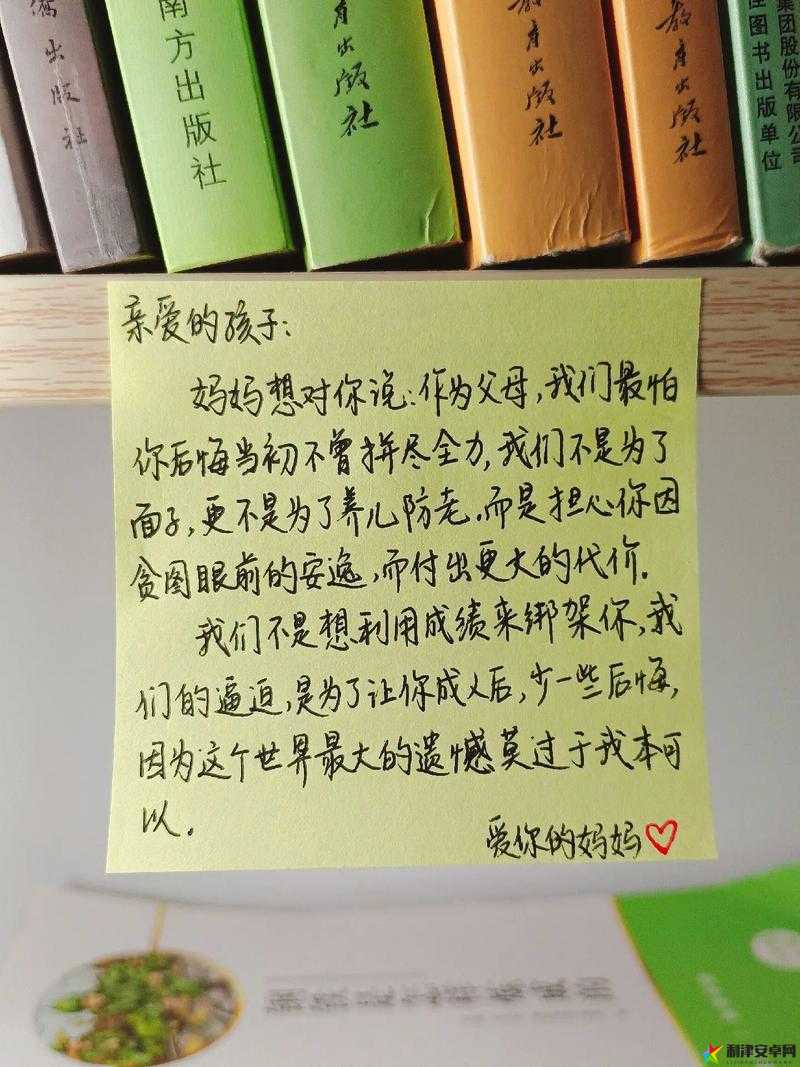 出版社
南方出版社
教育出版社
教育出版社
教育出版社
集团股份有限公司
佳图书出版单位
亲爱的孩子:
妈妈想对你说:作为父母,我们最怕
你后悔当初不曾拼尽全力,我们不是为了
面子,更不是为了养儿防老,而是担心你因
贪图眼前的安逸,而付出更大的代价.
我们不是想利用成绩来绑架你,我
们的逼迫,是为了让你成人后,少一些后悔,
因为这个世界最大的遗憾莫过于我本可
以.
爱你的妈妈
利津安卓网